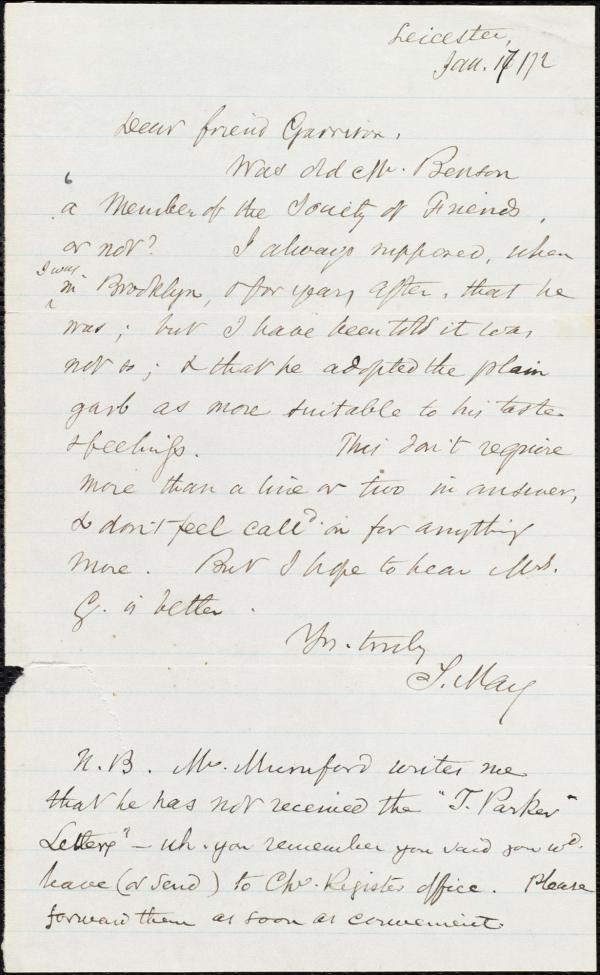 Leicester,
Jan. 17/72
Dear friend Garrison,
Was old Mr. Benson
a Member of the Society of Friends,
or not? I always supposed, when
I was
in Brooklyn, & for years after, that he
was; but I have been told it was
not so; & that he adopted the plain
garb as more suitable to his taste
& feelings. This don't require
more than a line or two in answer,
& don't feel call'd on for anything
more. But I hope to hear Mrs.
G. is better.
Yrs. truly
S. May
N.B. Mr. Mumford writes me
that he has not received the "T. Parker
Letters" – wh. you remember you said you wd.
leave (or send) to Chr. Register office. Please
forward them as soon as convenient.